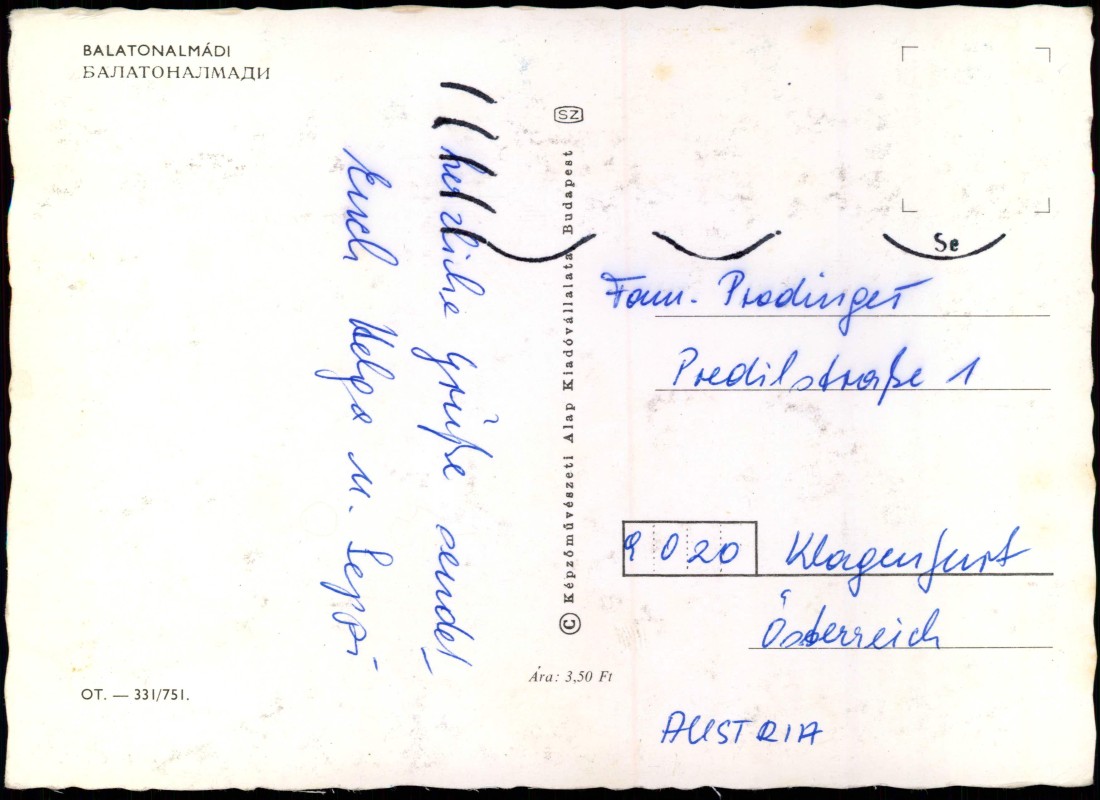 BALATONALMÁDI
БАЛАТОНАЛМАДИ
herzliche Grüße sendet
Euch Helga u. Seppi
OT. — 331/751.
SZ
© Képzőművészeti Alap Kiadóvállalata Budapest
Ára: 3,50 Ft
Se
Fam. Prodinger
Predilstraße 1
9020 Klagenfurt
Österreich
AUSTRIA